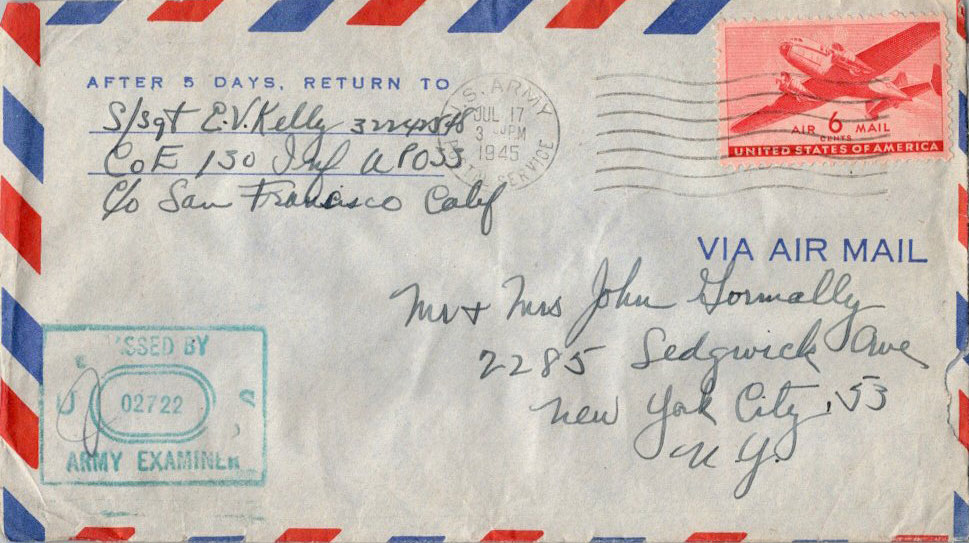 AFTER 5 DAYS, RETURN TO
S/Sgt E.V. Kelly 32242848
Co E 130 Inf APO 33
C/o San Francisco Calif
U.S. ARMY
JUL 17
3 PM
1945
SERVICE
AIR 6 MAIL
CENTS
UNITED STATES OF AMERICA
VIA AIR MAIL
Mr + Mrs John Gormally
2285 Sedgwick Ave
New York City, 53
N.Y.
PASSED BY
U S
02722
ARMY EXAMINER